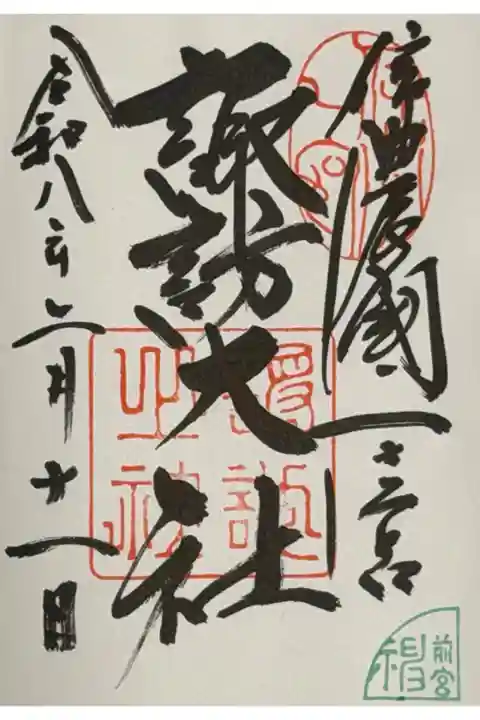 信濃國一之宮
諏訪大社
令和八年二月十一日
前宮